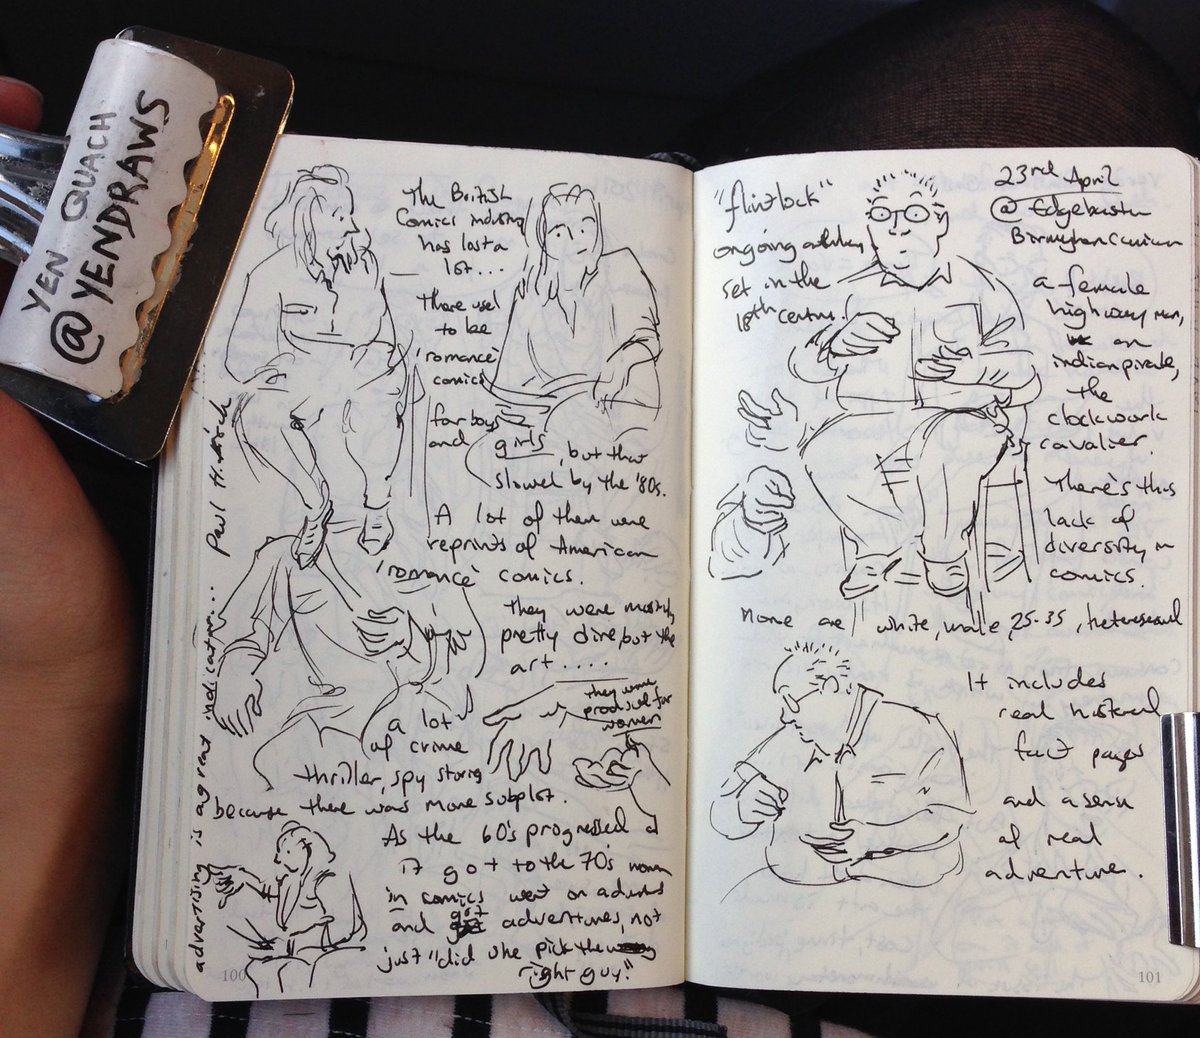 YEN QUACH
@YENDRAWS
The British
Comics industry
has lost a
lot...
There used
to be
'romance'
comics
for boys
and
girls, but that
slowed by the '80s.
A lot of them were
reprints of American
'romance' comics.
They were mostly
pretty dire, but the
art.....
they were
produced for
women
a lot
of crime
thriller, spy stories
because there was more subplot.
As the 60's progressed
it got to the 70's women
in comics went on
and got adventures, not
just "did she pick the
right guy."
advertising is a great indicator... Paul
100
"flintlock"
ongoing
set in the
18th century.
23rd April
@ Edgbaston
a female
highwayman,
an
indian pirate,
the
clockwork
cavalier.
There's this
lack of
diversity in
comics.
More are white, male, 25-35, heterosexual
It includes
real historical
fact pages
and a sense
of real
adventure.
101